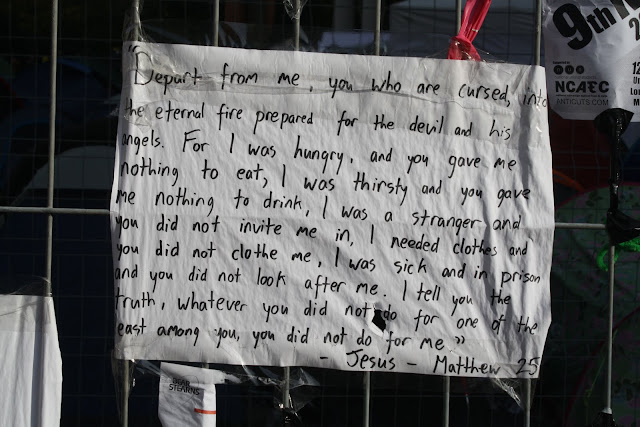 "Depart from me, you who are cursed, into
the eternal fire prepared for the devil and his
angels. For I was hungry, and you gave me
nothing to eat, I was thirsty and you gave
me nothing to drink, I was a stranger and
you did not invite me in, I needed clothes and
you did not clothe me, I was sick and in prison
and you did not look after me. I tell you the
truth, whatever you did not do for one of the
east among you, you did not do for me"
- Jesus - Matthew 25
9th N
NCAFC
ANTICUTS.COM
BEAR
STEARNS